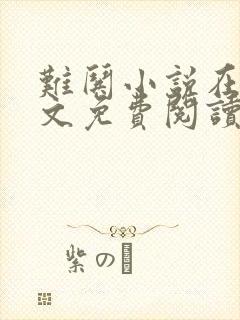 難鬩小説在
文免費閱讀
紫の